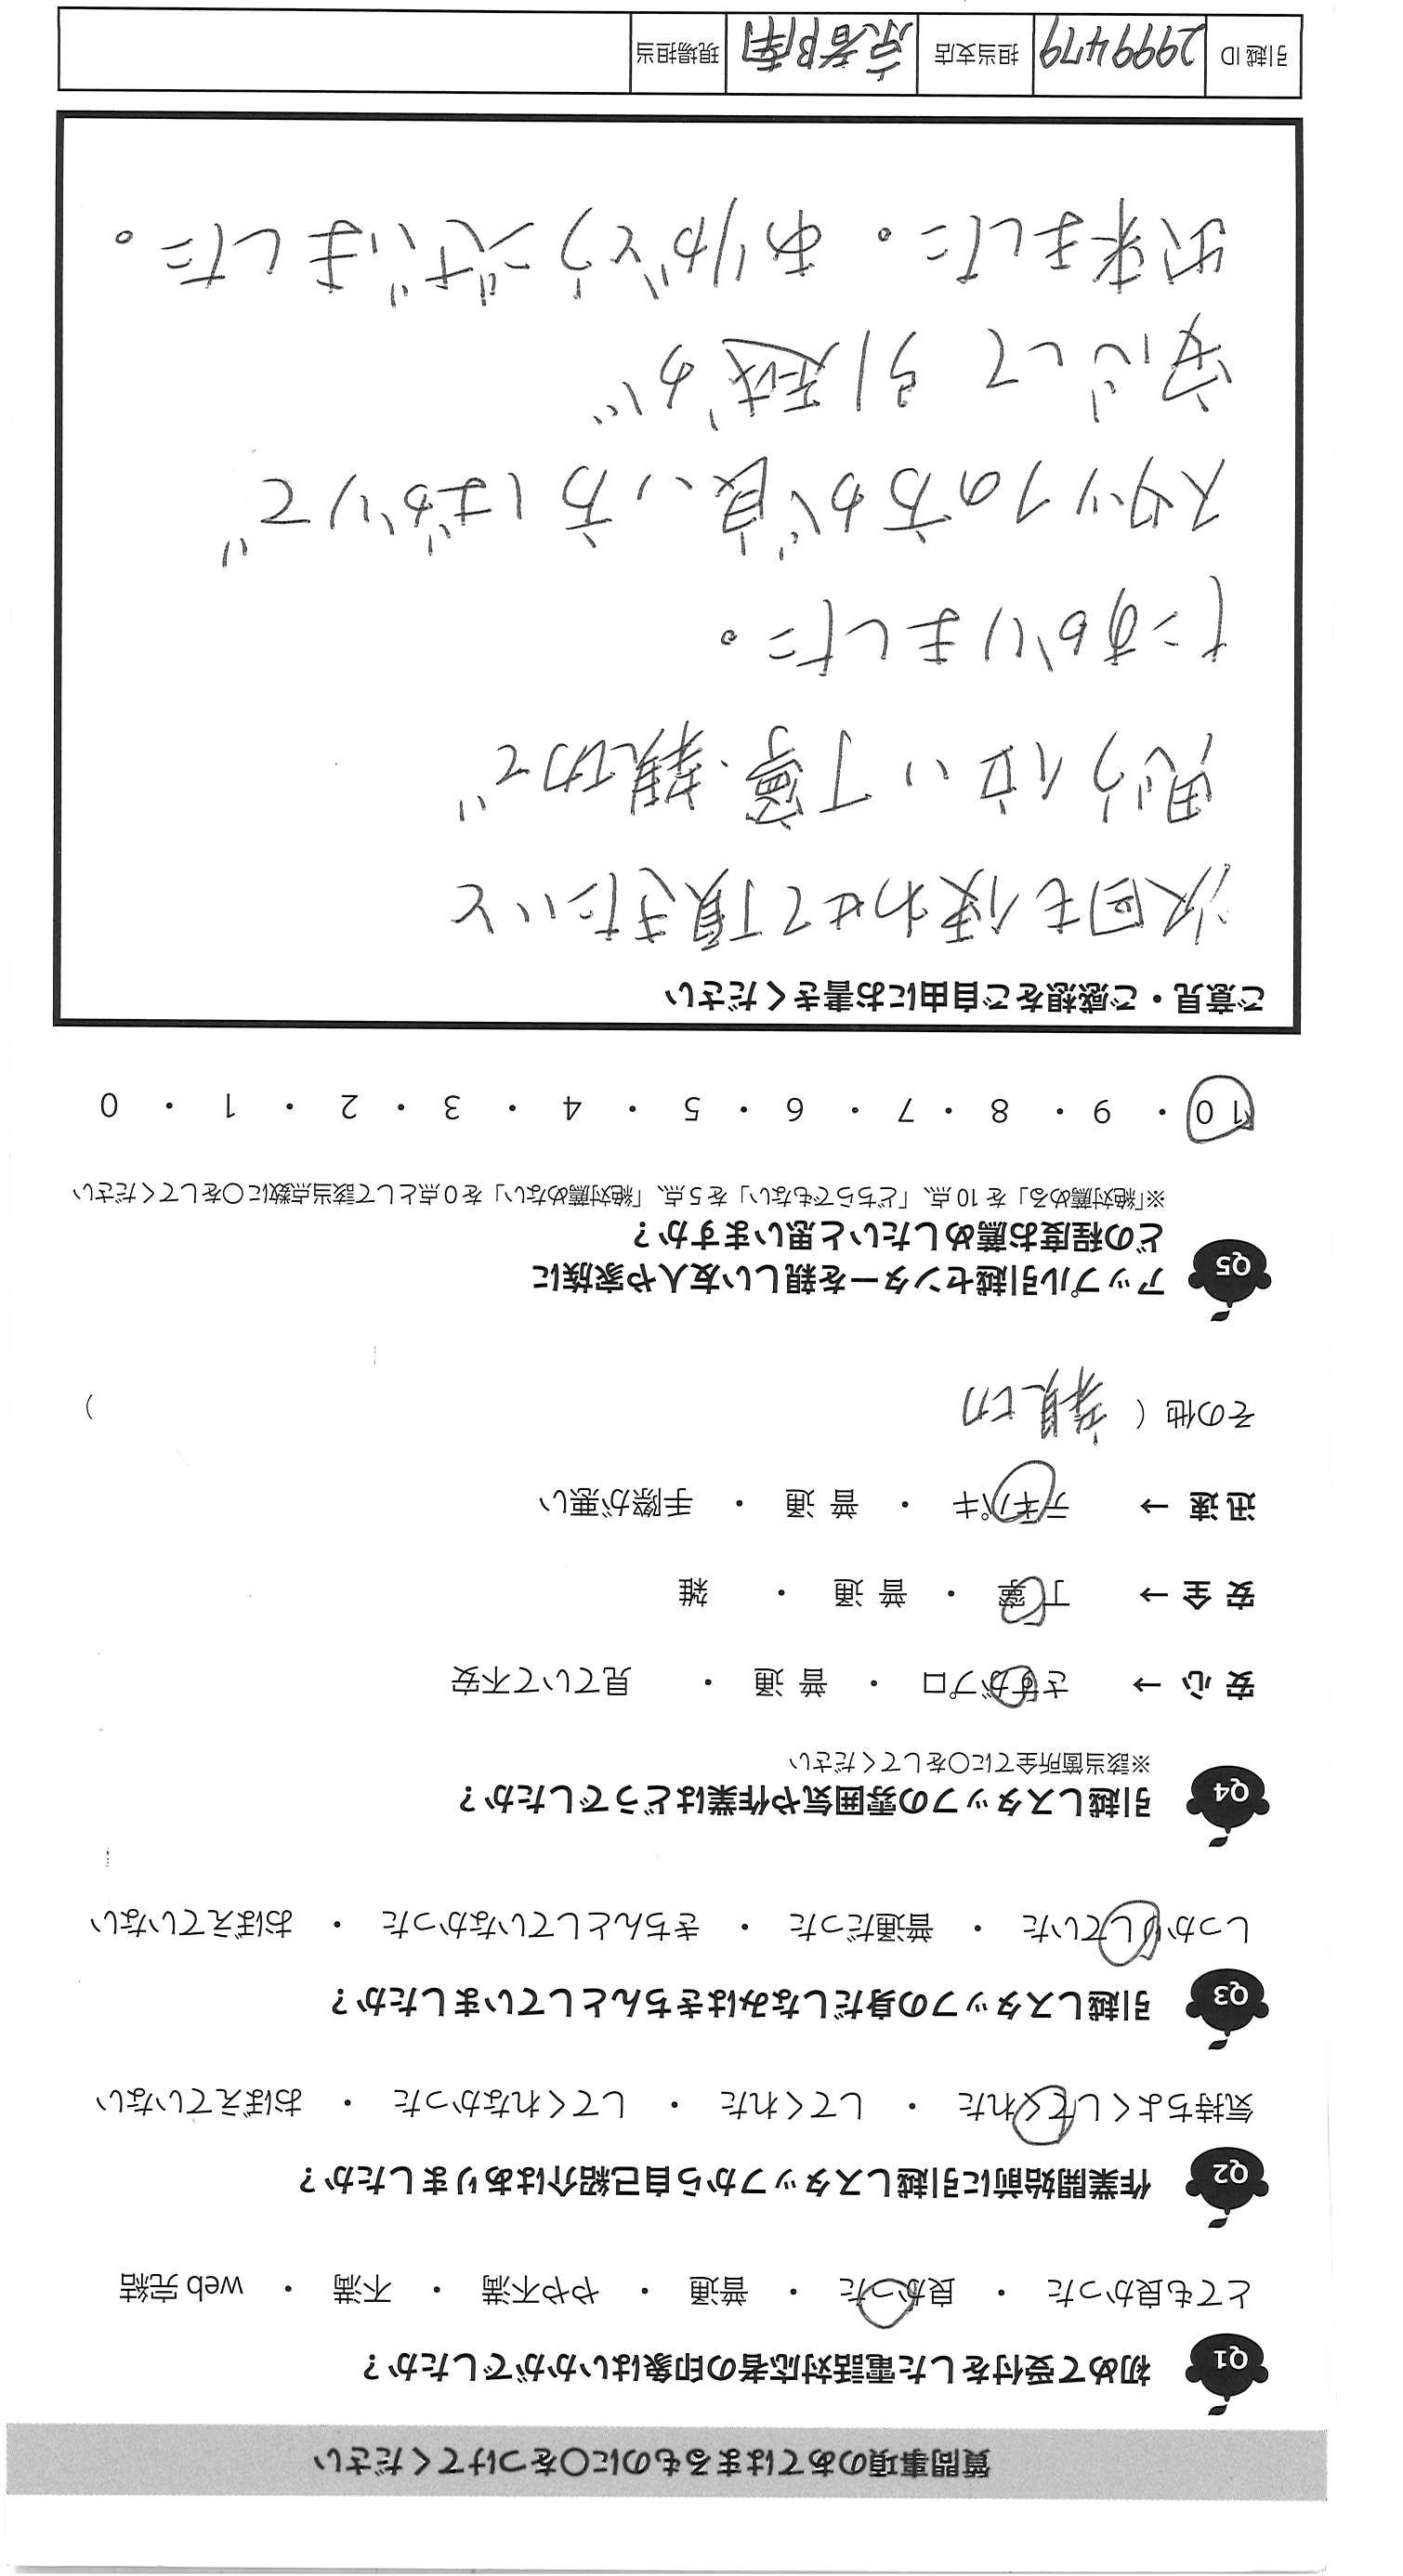 質問事項のあてはまるものに○をつけてください
Q1 初めて受付をした電話対応者の印象はいかがでしたか？
とても良かった ・ 良かった ・ 普通 ・ やや不満 ・ 不満 ・ web 完結
Q2 作業開始前に引越しスタッフから自己紹介はありましたか？
気持ちよくしてくれた ・ してくれた ・ してくれなかった ・ おぼえていない
Q3 引越しスタッフの身だしなみはきちんとしていましたか？
しっかりしていた ・ 普通だった ・ きちんとしていなかった ・ おぼえていない
Q4 引越しスタッフの雰囲気や作業はどうでしたか？
※該当箇所全てに○をしてください
安 心 → さすがプロ ・ 普 通 ・ 見ていて不安
安 全 → 丁 寧 ・ 普 通 ・ 雑
迅 速 → テキパキ ・ 普 通 ・ 手際が悪い
その他（ 親切 ）
Q5 アップル引越センターを親しい友人や家族に
どの程度お薦めしたいと思いますか？
※「絶対薦める」を 10 点、「どちらでもない」を 5 点、「絶対薦めない」を 0 点として該当点数に○をしてください
10 ・ 9 ・ 8 ・ 7 ・ 6 ・ 5 ・ 4 ・ 3 ・ 2 ・ 1 ・ 0
ご意見・ご感想をご自由にお書きください
次回も使わせて頂きたいと
思う位い丁寧・親切で
たすかりました。
スタッフの方が良い方ばかりで
安心して引越が
出来ました。ありがとうございました。
引越 ID 2999479 担当支店 京都南 現場担当